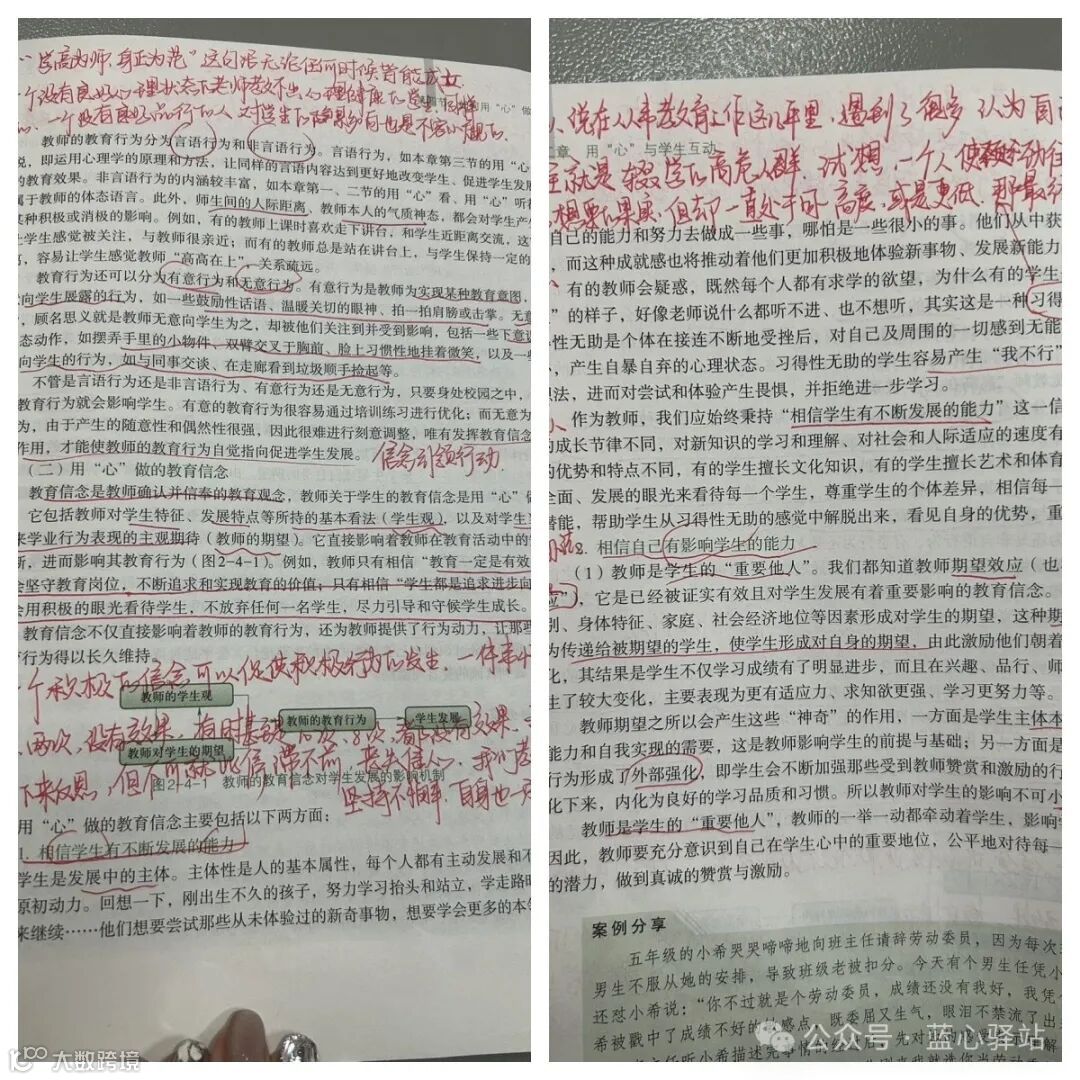 "学高为师,身正为范"这句话无论任何时候皆能成立
一个没有良好心理状态下老师教不出心理健康的学生,同样
的,一个没有良好品行的人对学生的
也是不容小觑的。
用"心"做
教师的教育行为分为言语行为和非言语行为。言语行为,如本章第三节的用"心"
说,即运用心理学的原理和方法,让同样的言语内容达到更好地改变学生、促进学生发展
的教育效果。非言语行为的内涵较丰富,如本章第一、二节的用"心"看、用"心"听都
属于教师的体态语言。此外,师生间的人际距离、教师本人的气质神态,都会对学生产生
某种积极或消极的影响。例如,有的教师上课时喜欢走下讲台,和学生近距离交流,这
让学生感觉被关注,与教师很亲近;而有的教师总是站在讲台上,与学生保持一定的
,容易让学生感觉教师"高高在上",关系疏远。
教育行为还可以分为有意行为和无意行为。有意行为是教师为实现某种教育意图,
向学生展露的行为,如一些鼓励性话语、温暖关切的眼神、拍一拍肩膀或击掌。无意
,顾名思义就是教师无意向学生为之,却被他们关注到并受到影响,包括一些下意识
态动作,如摆弄手里的小物件、双臂交叉于胸前、脸上习惯性地挂着微笑,以及一些
向学生的行为,如与同事交谈、在走廊看到垃圾顺手捡起等。
不管是言语行为还是非言语行为、有意行为还是无意行为,只要身处校园之中,
教育行为就会影响学生。有意的教育行为很容易通过培训练习进行优化;而无意为
为,由于产生的随意性和偶然性很强,因此很难进行刻意调整,唯有发挥教育信念
作用,才能使教师的教育行为自觉指向促进学生发展。 信念引领行动.
(二)用"心"做的教育信念
教育信念是教师确认并信奉的教育观念,教师关于学生的教育信念是用"心"做
它包括教师对学生特征、发展特点等所持的基本看法(学生观),以及对学生
来学业行为表现的主观期待(教师的期望)。它直接影响着教师在教育活动中的
断,进而影响其教育行为(图2-4-1)。例如,教师只有相信"教育一定是有效
会坚守教育岗位,不断追求和实现教育的价值;只有相信"学生都是追求进步向
会用积极的眼光看待学生,不放弃任何一名学生,尽力引导和守候学生成长。
教育信念不仅直接影响着教师的教育行为,还为教师提供了行为动力,让那
行为得以长久维持。
一个积极的信念可以促使积极行为的发生.一件事
教师的学生观
两次,没有效果,有时甚至
教师的教育行为
学生发展
教师对学生的期望
下来反思,但
停滞不前,丧失信心.我们
图2-4-1 教师的教育信念对学生发展的影响机制
坚持不懈,自身也
用"心"做的教育信念主要包括以下两方面:
1. 相信学生有不断发展的能力
学生是发展中的主体。主体性是人的基本属性,每个人都有主动发展和不
原初动力。回想一下,刚出生不久的孩子,努力学习抬头和站立,学走路
来继续……他们想要尝试那些从未体验过的新奇事物,想要学会更多的本
说在从事教育工作这几年里,遇到了很多认为自己
章 用"心"与学生互动
就是辍学的高危人群.试想,一个人
想要的果实,但却一直处于
高度,或是更低,那最终
自己的能力和努力去做成一些事,哪怕是一些很小的事。他们从中获
,而这种成就感也将推动着他们更加积极地体验新事物、发展新能力
有的教师会疑惑,既然每个人都有求学的欲望,为什么有的学生
"的样子,好像老师说什么都听不进、也不想听,其实这是一种习得
性无助是个体在接连不断地受挫后,对自己及周围的一切感到无能
,产生自暴自弃的心理状态。习得性无助的学生容易产生"我不行"
想法,进而对尝试和体验产生畏惧,并拒绝进一步学习。
作为教师,我们应始终秉持"相信学生有不断发展的能力"这一信
的成长节律不同,对新知识的学习和理解、对社会和人际适应的速度有
的优势和特点不同,有的学生擅长文化知识,有的学生擅长艺术和体育
全面、发展的眼光来看待每一个学生,尊重学生的个体差异,相信每一
潜能,帮助学生从习得性无助的感觉中解脱出来,看见自身的优势,重
2. 相信自己有影响学生的能力
(1)教师是学生的"重要他人"。我们都知道教师期望效应(也
应",它是已经被证实有效且对学生发展有着重要影响的教育信念。
别、身体特征、家庭、社会经济地位等因素形成对学生的期望,这种期
为传递给被期望的学生,使学生形成对自身的期望,由此激励他们朝着
化,其结果是学生不仅学习成绩有了明显进步,而且在兴趣、品行、师
生了较大变化,主要表现为更有适应力、求知欲更强、学习更努力等。
教师期望之所以会产生这些"神奇"的作用,一方面是学生主体本
能力和自我实现的需要,这是教师影响学生的前提与基础;另一方面是
行为形成了外部强化,即学生会不断加强那些受到教师赞赏和激励的行
化下来,内化为良好的学习品质和习惯。所以教师对学生的影响不可小
教师是学生的"重要他人",教师的一举一动都牵动着学生,影响
因此,教师要充分意识到自己在学生心中的重要地位,公平地对待每一
的潜力,做到真诚的赞赏与激励。
案例分享
五年级的小希哭哭啼啼地向班主任请辞劳动委员,因为每次
男生不服从她的安排,导致班级老被扣分。今天有个男生任凭小
还怼小希说:"你不过就是个劳动委员,成绩还没有我好,我凭
希被戳中了成绩不好的敏感点,既委屈又生气,眼泪不禁流了出
主任听小希描述完事情的经过后,先对
大数跨境
公众号·蓝心驿站